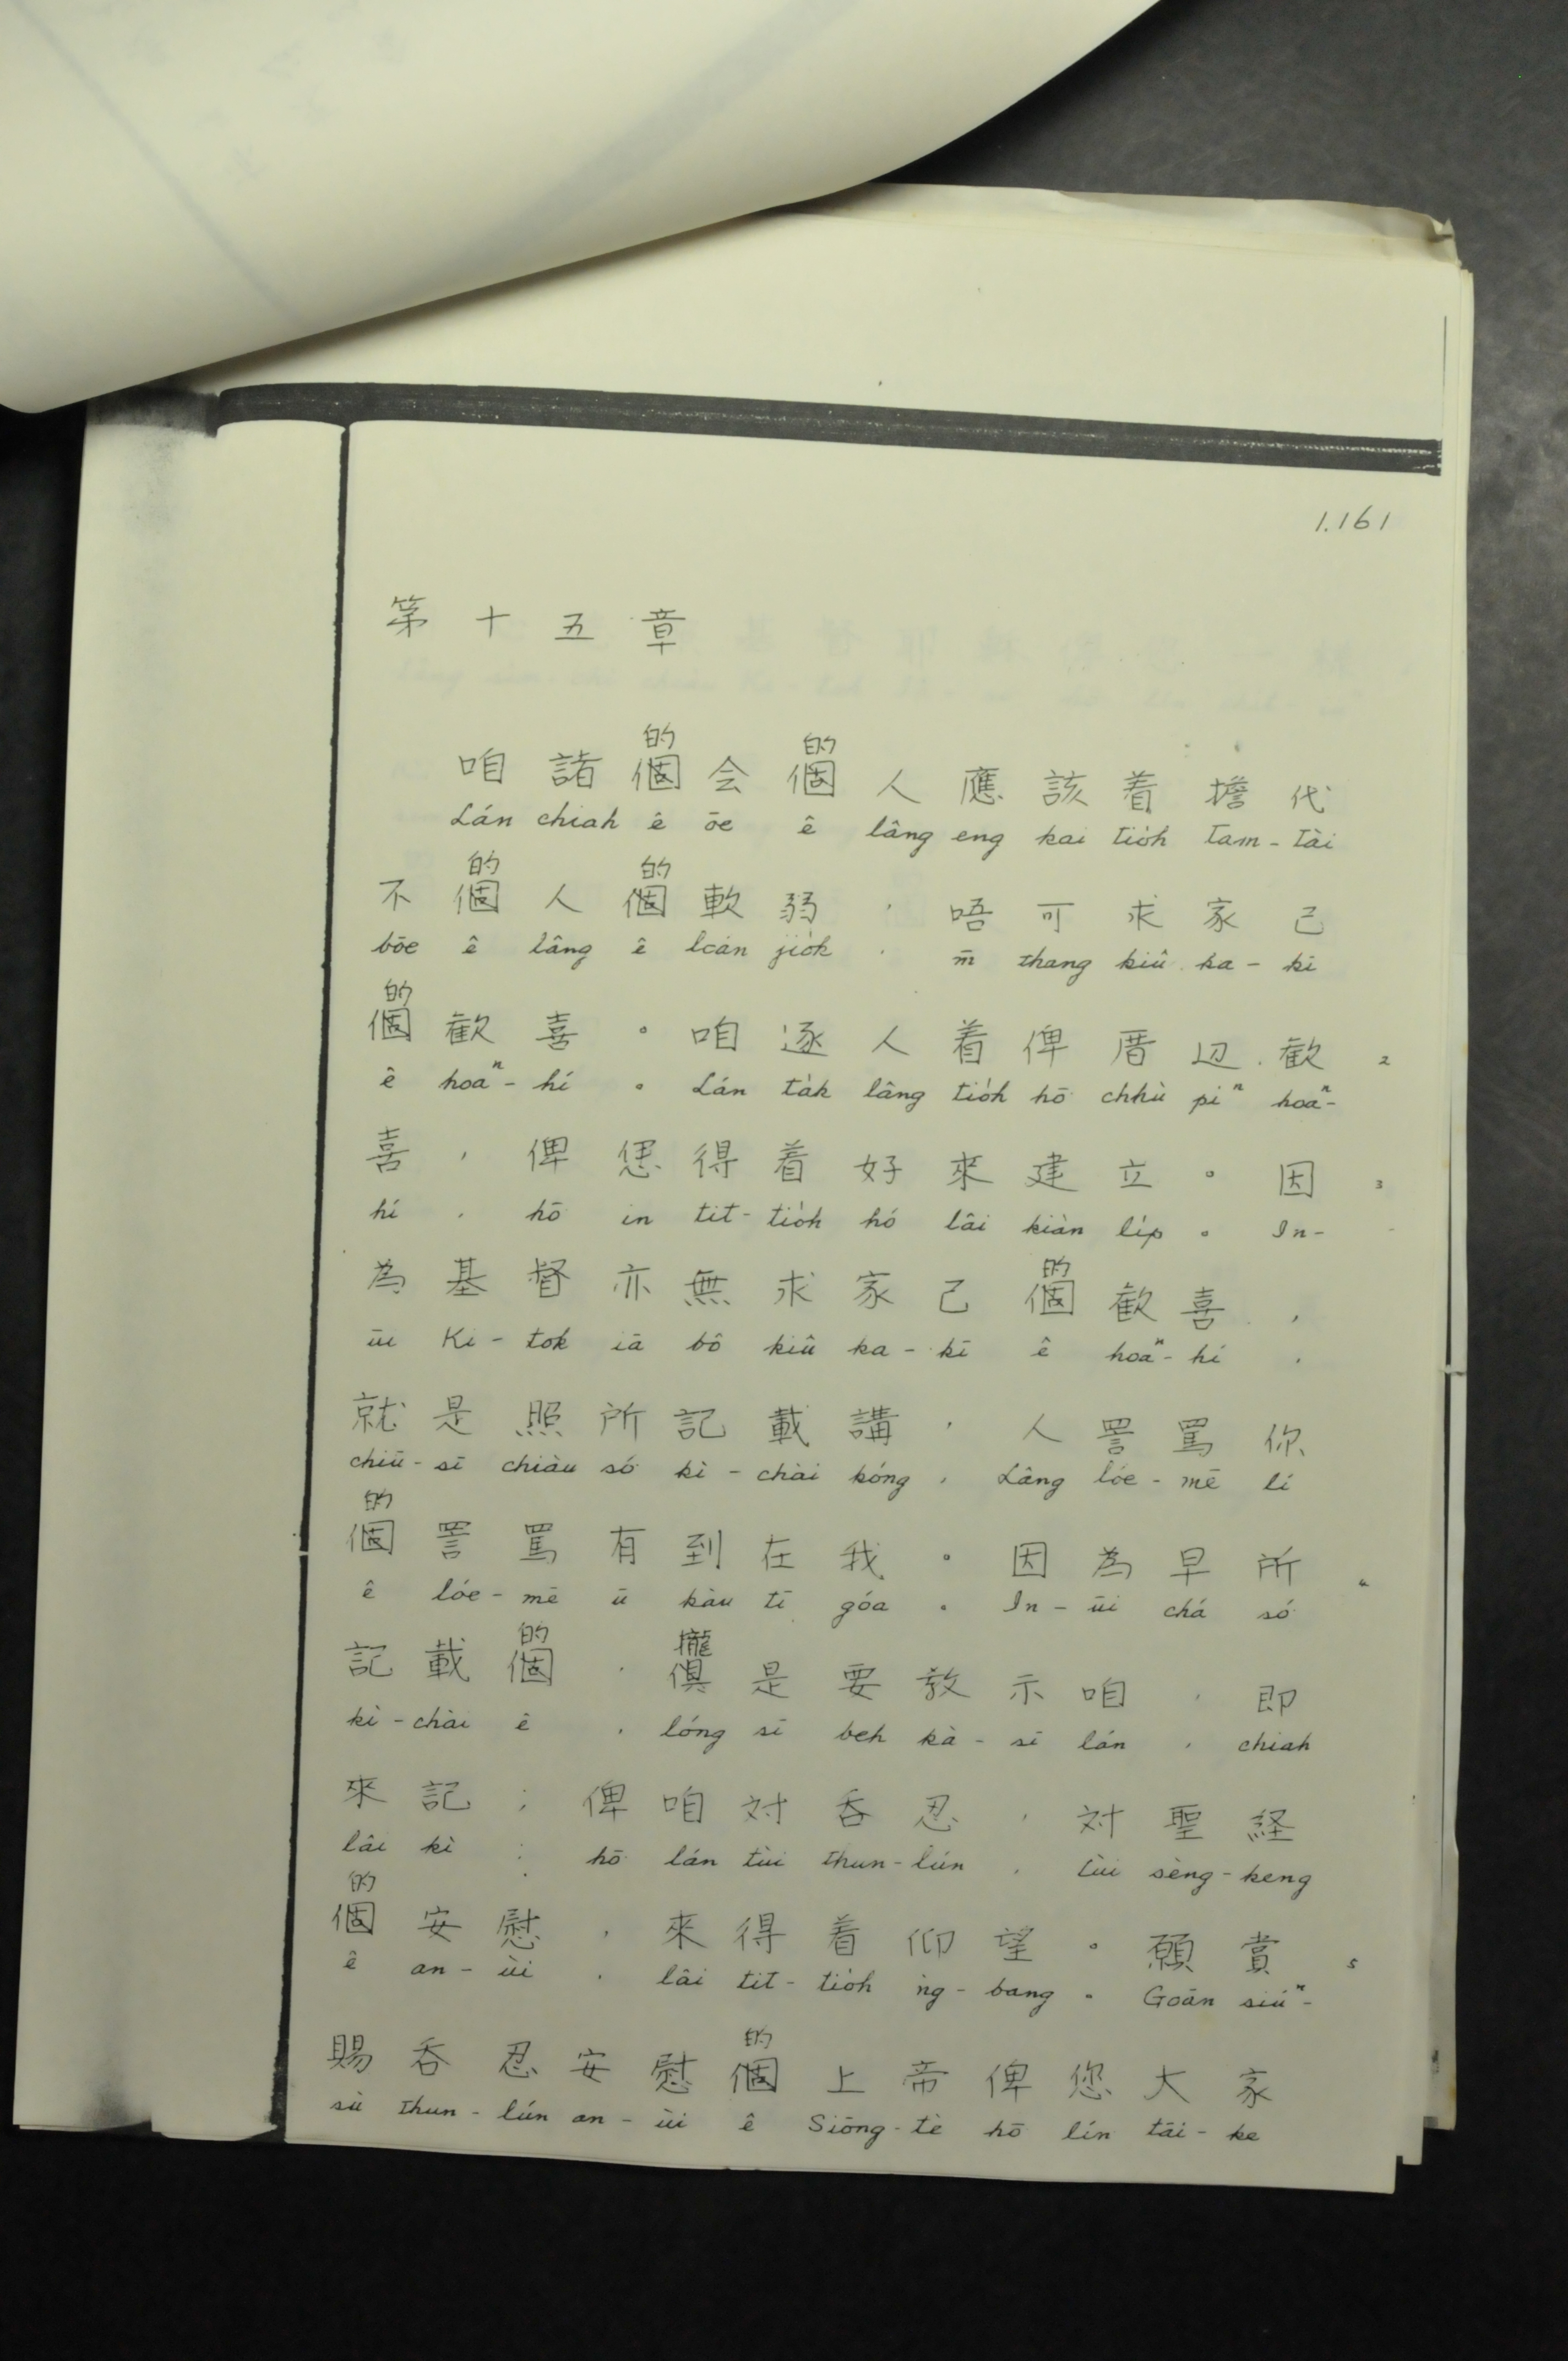 1.161
第十五章
的 的
咱諸個会個人應該着擔代
Lán chiah ê ōe ê lâng eng kai tio̍h tam-tài
的 的
不個人個軟弱，唔可求家己
bōe ê lâng ê lóan jio̍k , m̄ thang kiû ka-kī
的
個歡喜。咱逐人着俾厝辺歡 2
ê hoaⁿ-hí 。 Lán ta̍k lâng tio̍h hō chhù piⁿ hoaⁿ-
喜，俾𠍁得着好來建立。因 3
hí , hō in tit-tio̍h hó lâi kiàn li̍p 。 In-
的
為基督亦無求家己個歡喜，
ūi Ki-tok iā bô kiû ka-kī ê hoaⁿ-hí ,
就是照所記載講，人詈罵你
chiū-sī chiàu só kì-chài kóng , Lâng lóe-mē lí
的
個詈罵有到在我。因為早所 4
ê lóe-mē ū kàu tī góa 。 In-ūi chá só
的 攏
記載個，俱是要教示咱，即
kì-chài ê , lóng sī beh kà-sī lán , chiah
來記；俾咱対吞忍，対聖経
lâi kì ; hō lán tùi thun-lún , tùi sèng-keng
的
個安慰，來得着仰望。願賞 5
ê an-ùi , lâi tit-tio̍h ǹg-bang 。 Goān siúⁿ-
的
賜吞忍安慰個上帝俾您大家
sù thun-lún an-ùi ê Siōng-tè hō lín tāi-ke